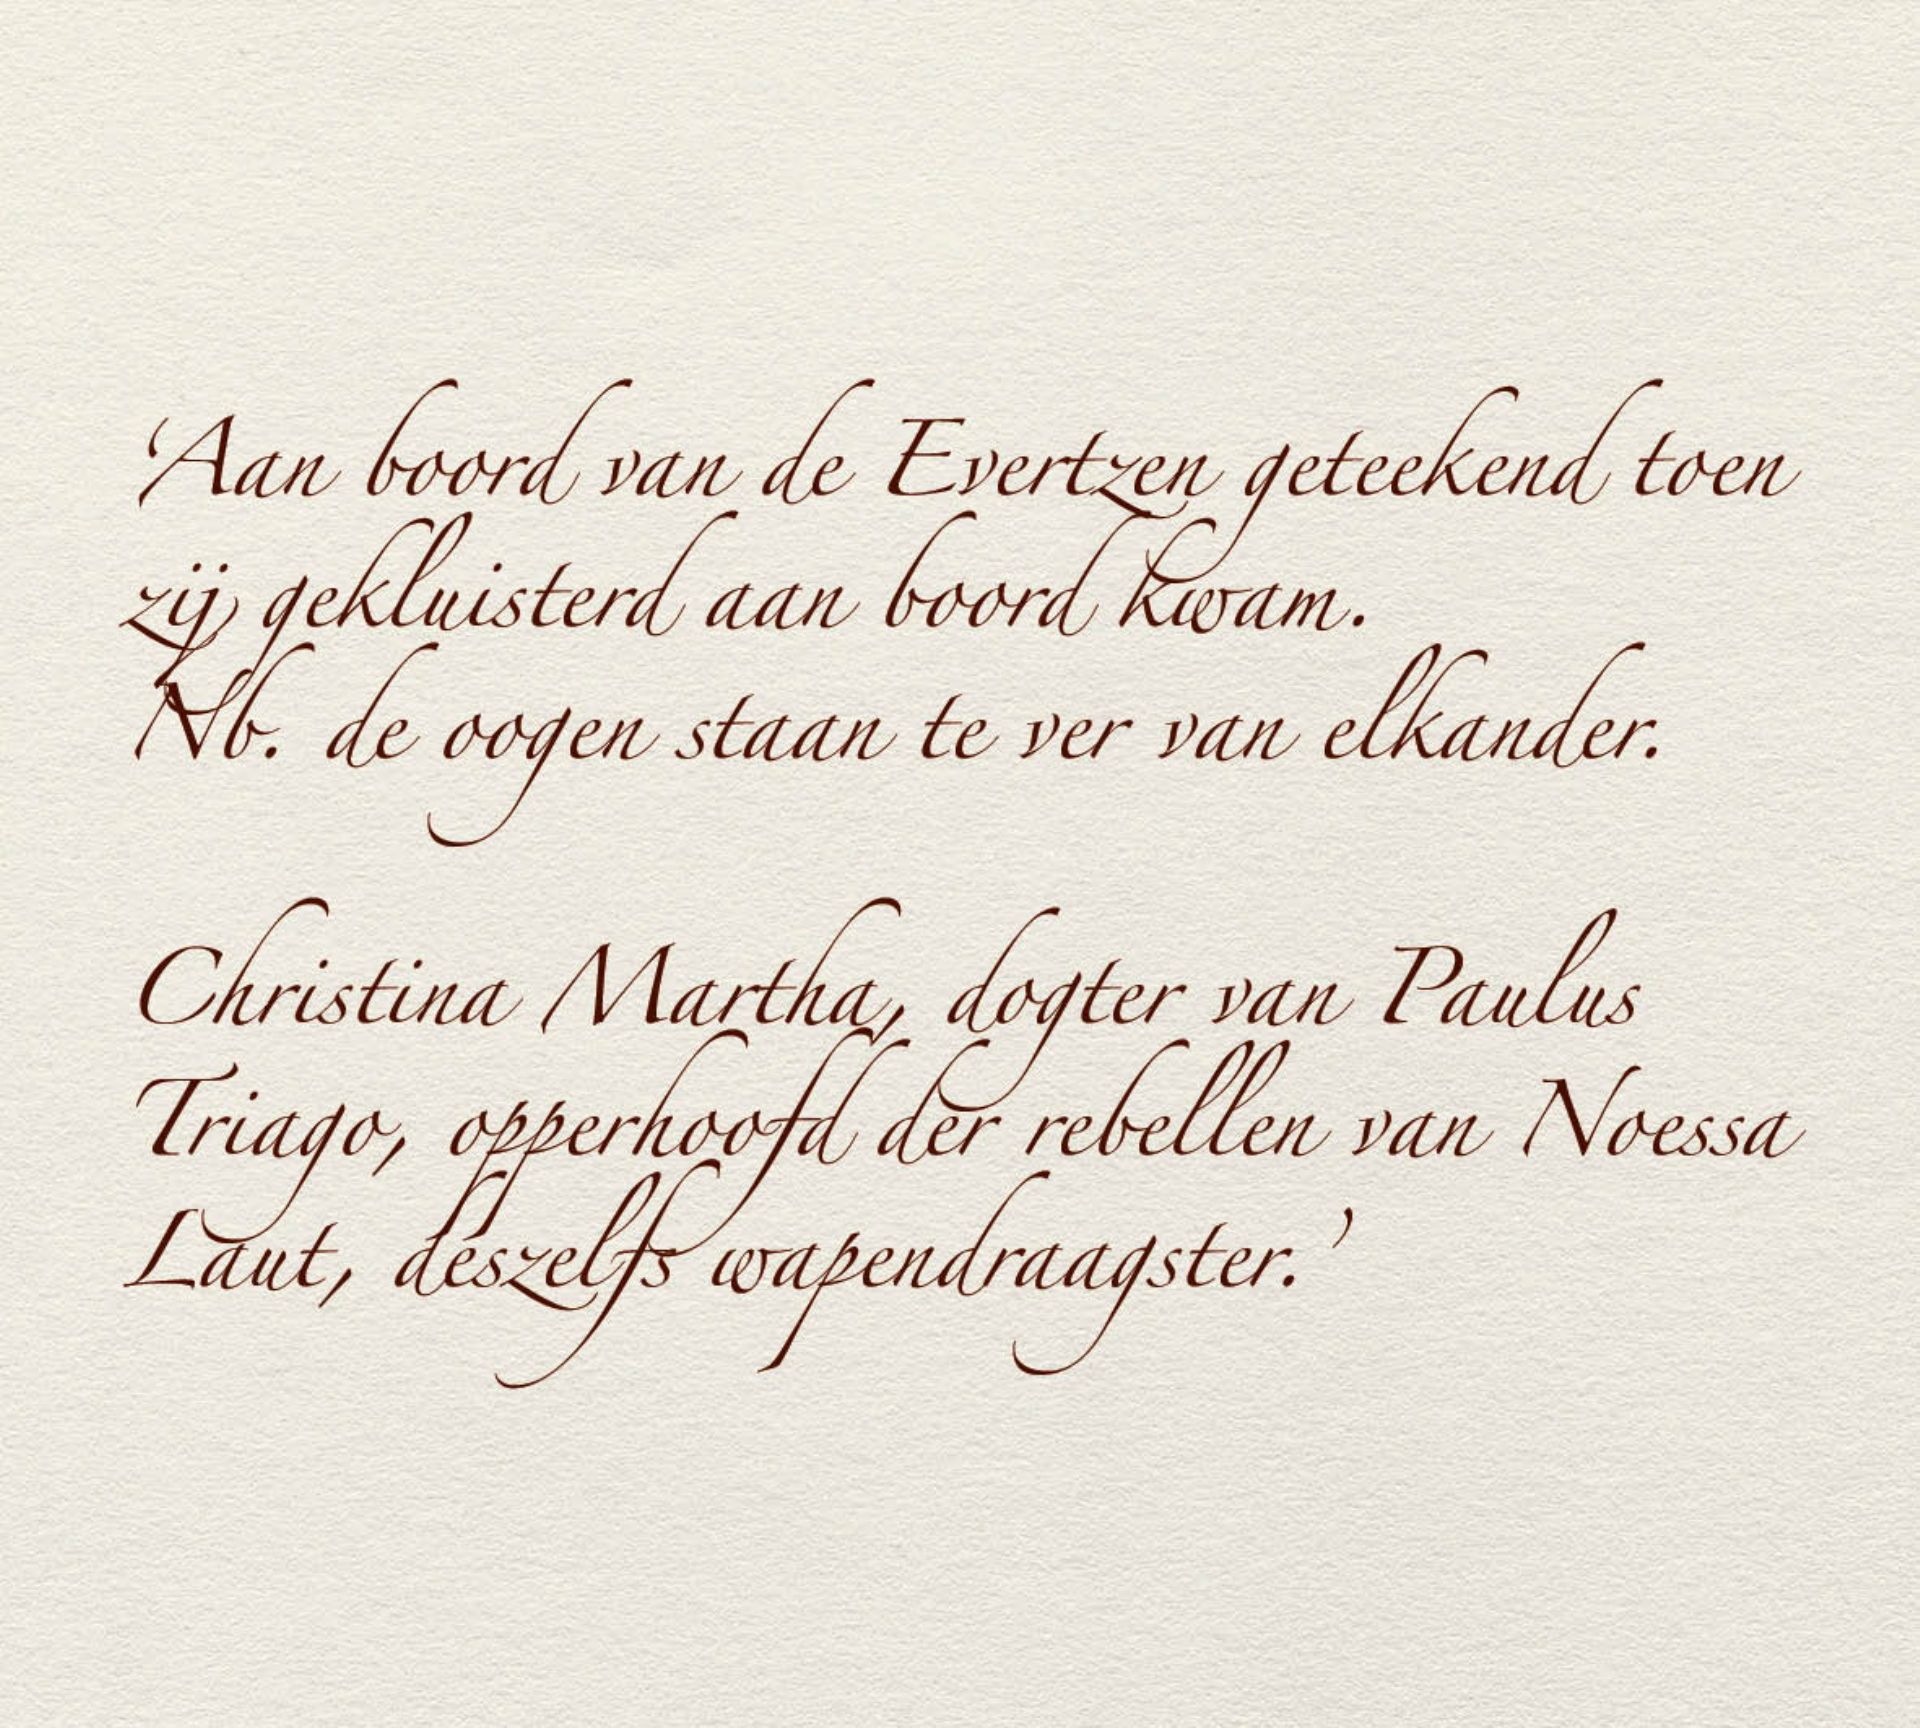 ‘Aan boord van de Evertzen geteekend toen
zij gekluisterd aan boord kwam.
Nb. de oogen staan te ver van elkander.
Christina Martha, dogter van Paulus
Triago, opperhoofd der rebellen van Noessa
Laut, deszelfs wapendraagster.’